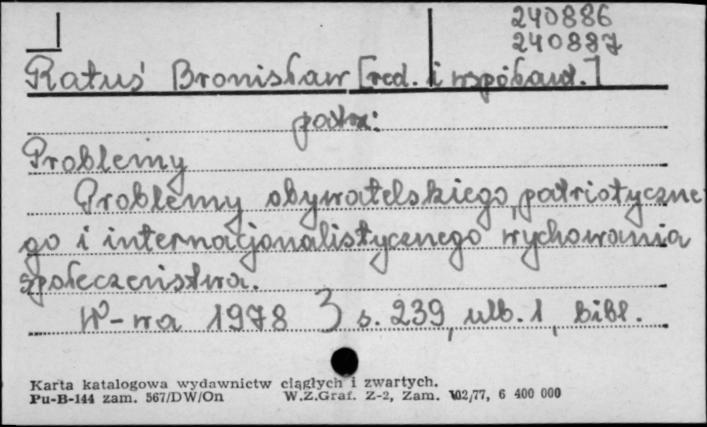 240886
240887
Ratuś Bronisław [red. i współaut.]
patrz:
Problemy
Problemy obywatelskiego, patriotyczne-
go i internacjonalistycznego wychowania
społeczeństwa.
W-wa 1978 s. 239, ulb. 1, bibl.
Karta katalogowa wydawnictw ciągłych i zwartych.
Pu-B-144 zam. 567/DW/On W.Z.Graf. Z-2, Zam. 102/77, 6 400 000